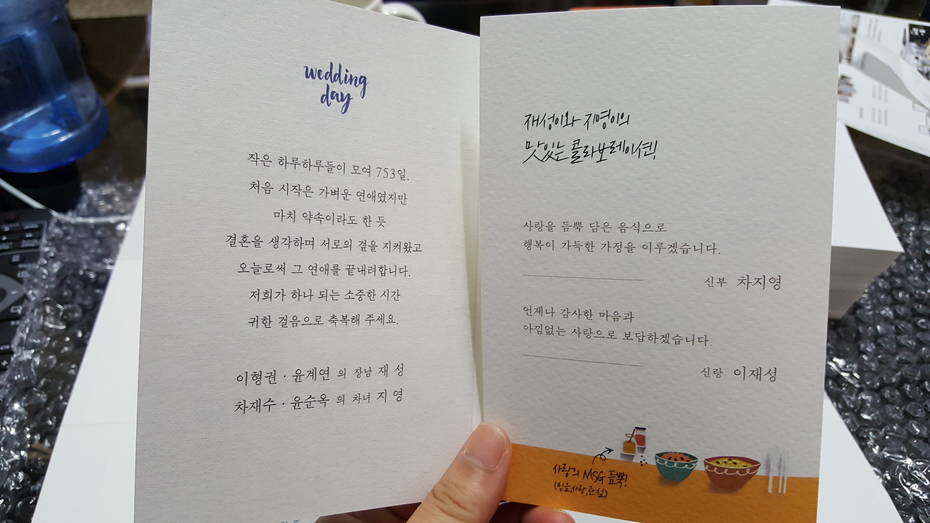 wedding
day
작은 하루하루들이 모여 753일.
처음 시작은 가벼운 연애였지만
마치 약속이라도 한 듯
결혼을 생각하며 서로의 곁을 지켜왔고
오늘로써 그 연애를 끝내려합니다.
저희가 하나 되는 소중한 시간
귀한 걸음으로 축복해 주세요.
이형권 · 윤계연 의 장남 재 성
차재수 · 윤순옥 의 차녀 지 영
재성이와 지영이의
맛있는 콜라보레이션!
사랑을 듬뿍 담은 음식으로
행복이 가득한 가정을 이루겠습니다.
신부 차지영
언제나 감사한 마음과
아낌없는 사랑으로 보답하겠습니다.
신랑 이재성
사랑의 MSG 듬뿍!
(믿음,사랑,관심)